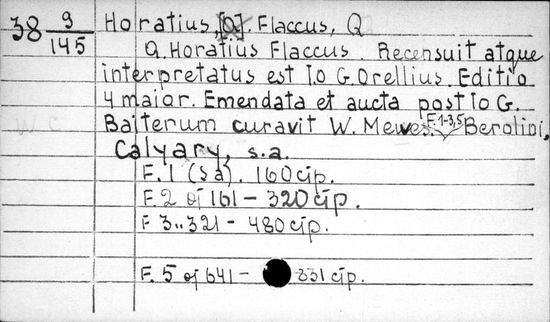 38 9/145 Horatius, [Q] Flaccus, Q
Q. Horatius Flaccus. Recensuit atque
interpretatus est Io G. Orellius. Editio
4 maior. Emendata et aucta post Io G.
Baiterum curavit W. Mewes. F. 1-3,5 Berolini,
Calvary, s.a.
F. 1 (s a). 160 cip.
F. 2 oj 161 - 320 cip.
F 3.. 321 - 480 cip.
F. 5 oj 641 - 331 cip.